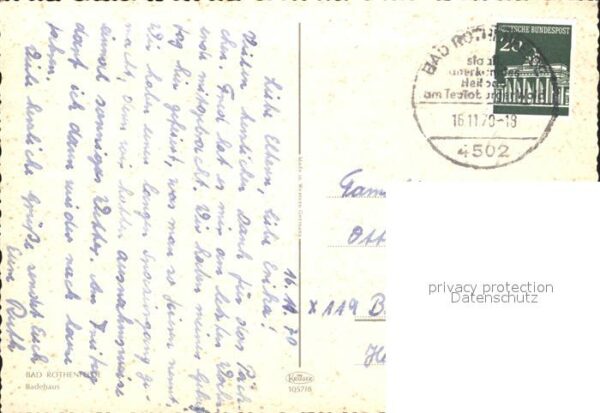 16.11.70
Liebe Eltern, liebe Erika!
Vielen herzlichen Dank für das Päck-
chen. Gust hat es mir am letzten Wochen-
ende mitgebracht. Wir haben meinen Geburts-
tag hier gefeiert, was man so feiern nennt.
Wir haben einen langen Spaziergang ge-
macht, denn wir hatten ausnahmsweise
einmal sonniges Wetter. Am Freitag
darf ich dann wieder nach Hause
fahren.
Viele herzliche Grüße sendet Euch
Eure Ruth
BAD ROTHENFELDE
Badehaus
Made in Western Germany
Krüger
1057/6
DEUTSCHE BUNDESPOST
20
BAD ROTHENFELDE
staatl.
anerkanntes
Heilbad
am Teutoburger Wald
16.11.70-18
4502
Fam
Ott
X 119 B
He
privacy protection
Datenschutz